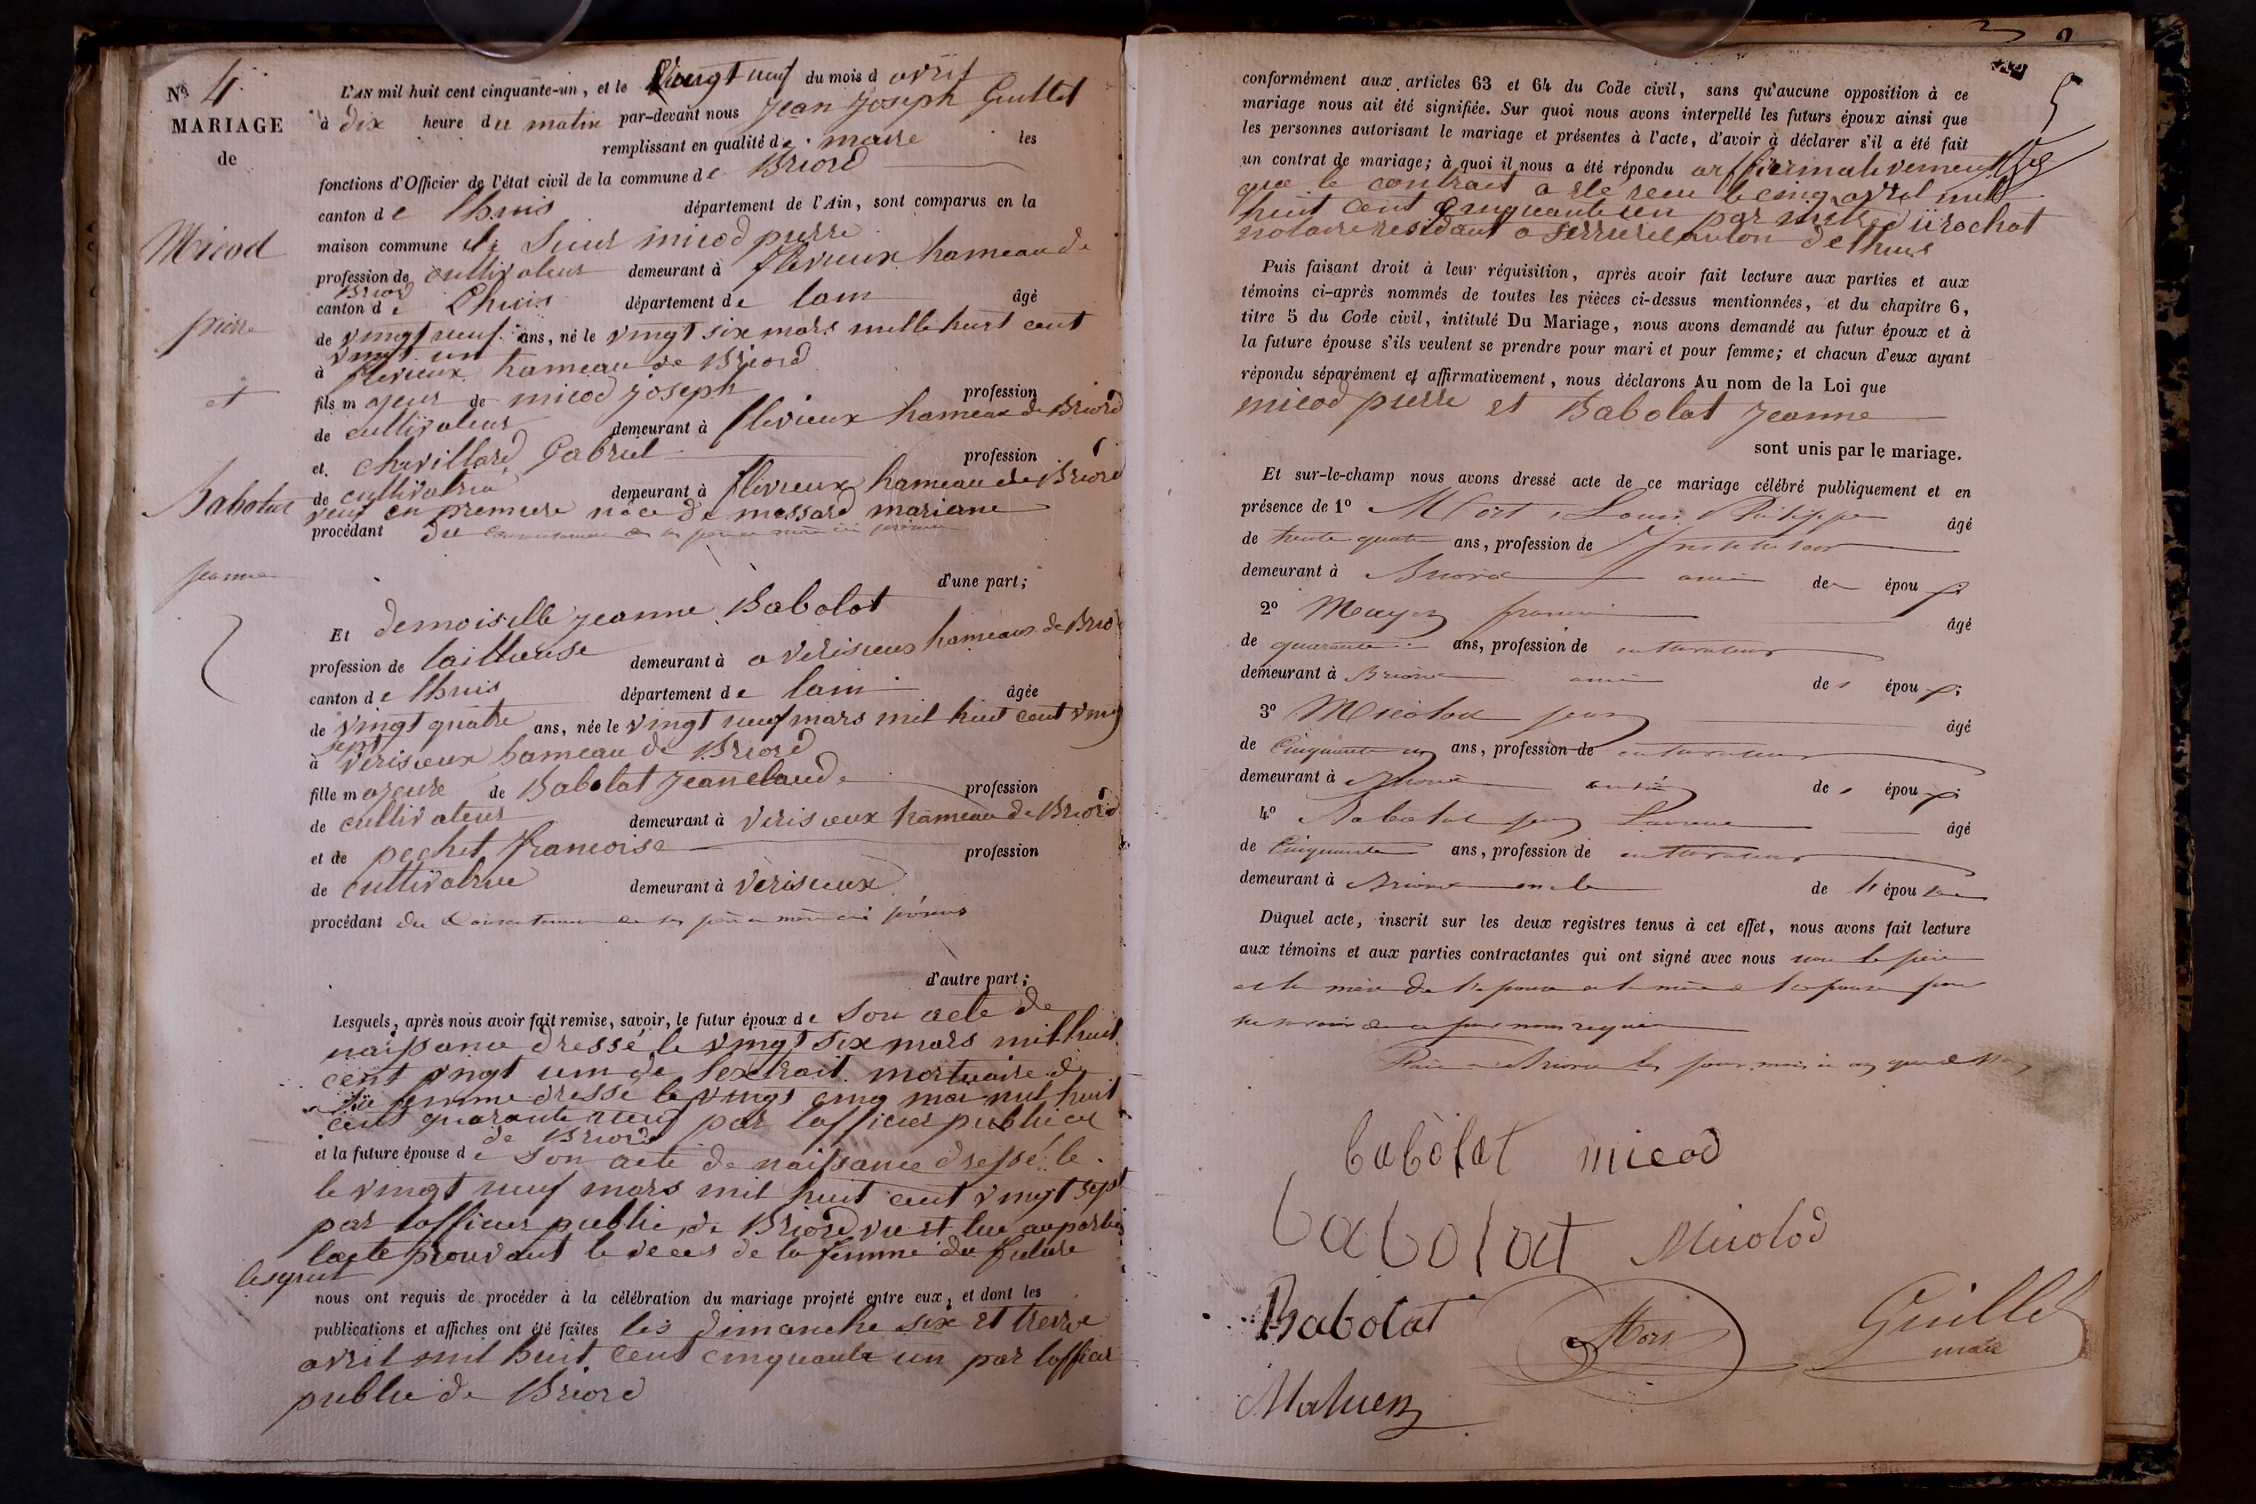 Nº 4
MARIAGE
de
Micod
pierre
et
Babolat
jeanne
L'AN mil huit cent cinquante-un, et le Vingt neuf du mois d avril
à dix heure du matin par-devant nous Jean Joseph Guillet
remplissant en qualité de maire les
fonctions d'Officier de l'état civil de la commune de Briord
canton de Lhuis département de l'Ain, sont comparus en la
maison commune le Sieur micod pierre
profession de cultivateur demeurant à flevieux hameau de
Briord
canton de Lhuis département de lain âgé
de vingt neuf ans, né le vingt six mars mille huit cent
vingt un
à flevieux hameau de Briord
fils majeur de micod joseph profession
de cultivateur demeurant à flevieux hameau de Briord
et chavillard Gabriel profession
de cultivatrice demeurant à flevieux hameau de Briord
veuf en premiere noce de massard mariane
procédant du consentement de ses père et mère ici présens
d'une part;
Et demoiselle jeanne Babolat
profession de tailleuse demeurant à a verisieux hameaux de Brio
canton de Lhuis département de lain âgée
de vingt quatre ans, née le vingt neuf mars mil huit cent vingt
sept
à verisieux hameau de Briord
fille majeure de Babolat Jean claude profession
de cultivateur demeurant à verisieux hameau de Briord
et de pochet francoise profession
de cultivatrice demeurant à verisieux
procédant du Consentement de ses père et mère ici présens
d'autre part;
Lesquels, après nous avoir fait remise, savoir, le futur époux de Son acte de
naissance dressé le vingt six mars mil huit
cent vingt un de lextrait mortuaire de
sa femme dressé le vingt cinq mai mil huit
cent quarante neuf par lofficier publice
de Briord
et la future épouse de Son acte de naissance dressé le
le vingt neuf mars mil huit cent vingt sept
par lofficier public de Briord vu et lue au parties
lacte prouvant le deces de la femme du future
lesquels
nous ont requis de procéder à la célébration du mariage projeté entre eux, et dont les
publications et affiches ont été faites les dimanche six et treize
avril mil huit cent cinquante un par lofficier
public de Briord
5
conformément aux articles 63 et 64 du Code civil, sans qu'aucune opposition à ce
mariage nous ait été signifiée. Sur quoi nous avons interpellé les futurs époux ainsi que
les personnes autorisant le mariage et présentes à l'acte, d'avoir à déclarer s'il a été fait
un contrat de mariage; à quoi il nous a été répondu affirmativement
que le contrat a été recu le cinq avril mil
huit cent cinquante un par maitre durochat
notaire residant a serrieres canton de lhuis
Puis faisant droit à leur réquisition, après avoir fait lecture aux parties et aux
témoins ci-après nommés de toutes les pièces ci-dessus mentionnées, et du chapitre 6,
titre 5 du Code civil, intitulé Du Mariage, nous avons demandé au futur époux et à
la future épouse s'ils veulent se prendre pour mari et pour femme; et chacun d'eux ayant
répondu séparément et affirmativement, nous déclarons Au nom de la Loi que
micod pierre et Babolat Jeanne
sont unis par le mariage.
Et sur-le-champ nous avons dressé acte de ce mariage célébré publiquement et en
présence de 1º Mort Louis Philippe âgé
de trente quatre ans, profession de Instituteur
demeurant à Briord ami de épou x
2º françois âgé
de quarante ans, profession de cultivateur
demeurant à Briord ami de s épou x
3º Micolod jean âgé
de Cinquante un ans, profession de cultivateur
demeurant à Briord de s épou x
4º Babolat Laurent âgé
de Cinquante ans, profession de cultivateur
demeurant à Briord oncle de l' épou se
Duquel acte, inscrit sur les deux registres tenus à cet effet, nous avons fait lecture
aux témoins et aux parties contractantes qui ont signé avec nous non le père
et la mère de l'epoux et la mère de l'epouse pour
ne savoir de ce fait requis
Fait à Briord les jour, mois et an que dessus
babolat micod
babolat Micolod
Babolat Mort Guillet
maire